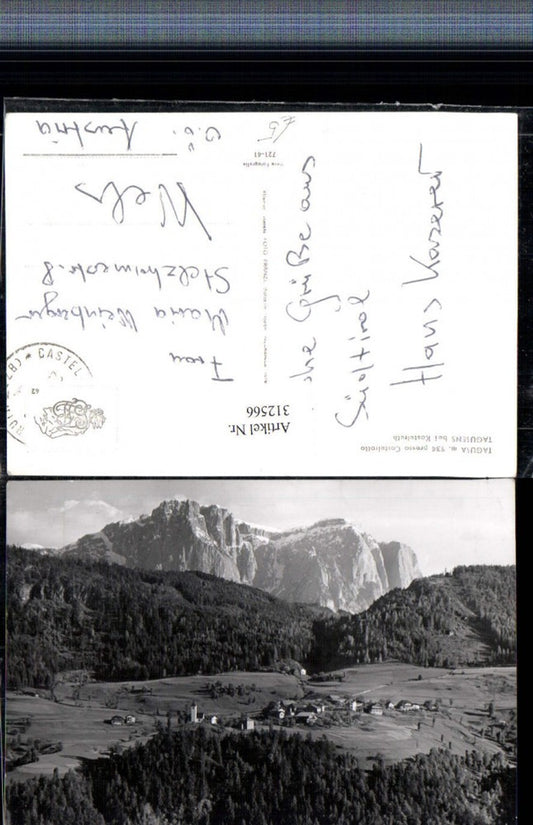 TAGUSA m. 936 presso Castelrotto
TAGUSENS bei Kastelruth
Grüße aus
Südtirol
Hans Kaserer
Artikel Nr.
312566
CASTEL
Frau
Maria Weinberger
Stelzhamerstr. 8
Wels
O.Ö. Austria
Vera Fotografia
721-41